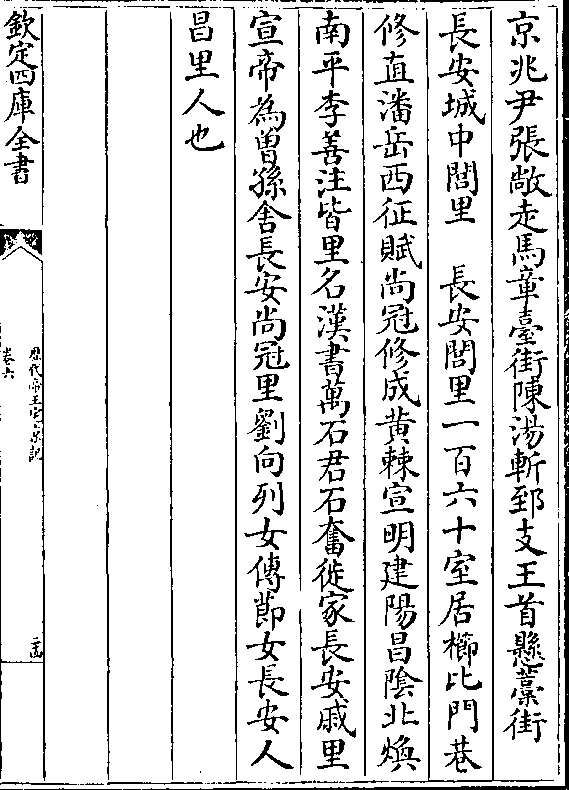 京兆尹張敞走馬章臺街陳湯斬郅支王首懸藁街
長安城中閭里　長安閭里一百六十室居櫛比門巷
修直潘岳西征賦尚冠修成黄棘宣明建陽昌陰北煥
南平李善注皆里名漢書萬石君石奮徙家長安戚里
宣帝為曽孫舎長安尚冠里劉向列女傳節女長安人
昌里人也
欽定四庫全書
歴代帝王宅京記
卷六